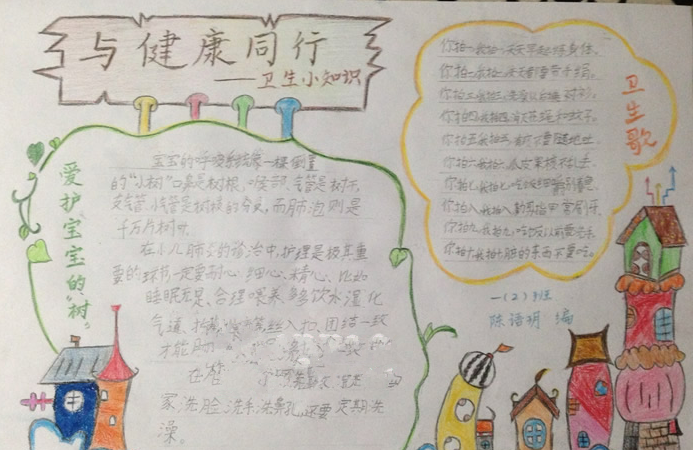 与健康同行
——卫生小知识
爱护宝宝的“树”
宝宝的呼吸系统像一棵倒置
的“小树”口鼻是树根，喉部、气管是树干，
支气管、小气管是树枝的分叉，而肺泡则是
千万片树叶。
在小儿肺炎的诊治中，护理是极其重
要的环节一定要耐心、细心、精心，比如
睡眠充足、合理喂养、多饮水湿化
气道、拍背、等丝丝入扣，团结一致
才能
家洗脸、洗手、洗鼻孔，还要定期洗
澡。
卫生歌
你拍一我拍一天天早起练身体。
你拍二我拍二天天要带手绢。
你拍三我拍三洗澡以后换衬衫。
你拍四我拍四消灭苍蝇和蚊子。
你拍五我拍五有痰不要随地吐。
你拍六我拍六瓜皮果核不乱丢。
你拍七我拍七吃饭细嚼别着急。
你拍八我拍八勤剪指甲常刷牙。
你拍九我拍九吃饭以前要洗手。
你拍十我拍十脏的东西不要吃。
一（2）班
陈语玥 编